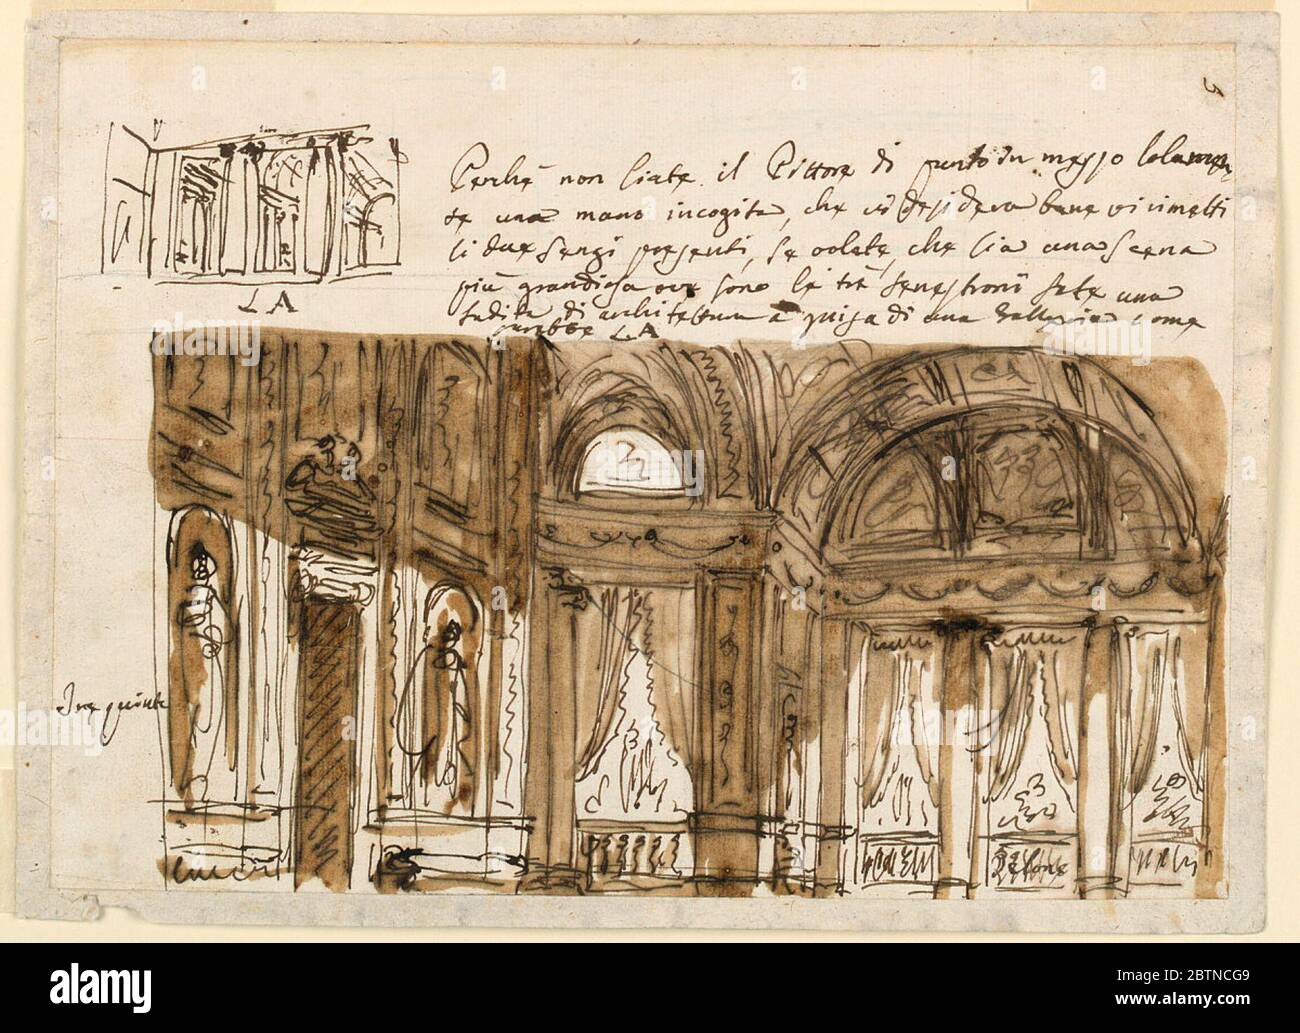 Perche non siate il Pittore di punto in mezzo solamen
te una mano incognita, che vi desidera bene vi rimetti
li due pensieri presenti, se volete, che sia una scena
più grandiosa ove sono le tre fenestroni fate una
fudita di architettura a guisa di una Galleria come
sarebbe LA
LA
Tre quinte
alamy
Image ID: 2BTNCG9
www.alamy.com